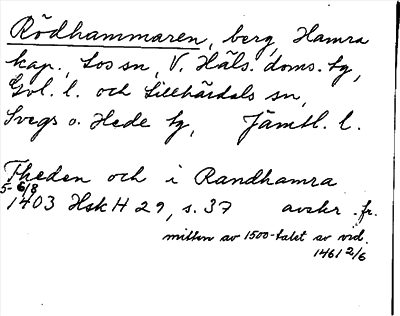 Rödhammaren, berg, Hamra
kap., Los sn, V. Häls. doms. tg,
Gvl. l. och Lillhärdals sn,
Svegs o. Hede tg, Jämtl. l.
Theden och i Randhamra
5-6/8
1403 Hsk H 29, s. 37 avskr. fr.
mitten av 1500-talet av vid.
1461 2/6